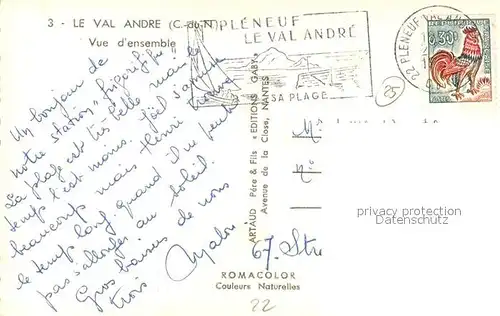 3 - LE VAL ANDRE (C.-du-N.)
Vue d'ensemble
PLÉNEUF
LE VAL ANDRÉ
SA PLAGE
22 PLENEUF-VAL-A
0,30
25
Un bonjour de
notre station "frigorifique"!
La plage est très belle mais le
temps l'est moins. Joël s'amuse
beaucoup mais Henri trouve
le temps long quand il ne peut
pas s'allonger au soleil.
Gros baisers de nous
trois
Malou
ARTAUD Père & Fils "EDITIONS GABY"
Avenue de la Close, NANTES
M
67. Stra
privacy protection
Datenschutz
ROMACOLOR
Couleurs Naturelles
22